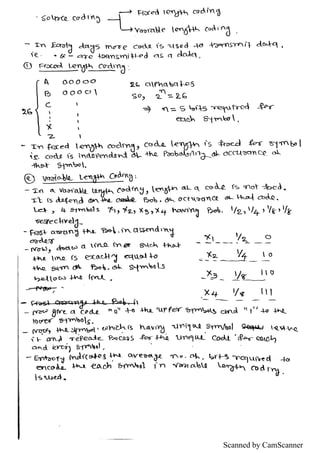 · Source coding
Fixed length coding
Variable length coding.
- In Early days morse code is used to transmit data,
ie. · & - are transmitted as a data.
① Fixed Length Coding:
26
A 00000
B 00001
C
X
Z
26 alphabates
so, 2^n = 26
⇒ n = 5 bits required for
each symbol.
- In fixed length coding, code length is fixed for symbol
ie code is independend of the Probability of occurance of
that symbol.
② Variable Length Coding:
- In a variable length coding, length of a code is not fixed.
It is defend on the code Prob. of occurance of that code.
Let, 4 symbols X1, X2, X3, X4 having Prob. 1/2, 1/4, 1/8, 1/8
respectively.
- First arrang the Prob. in assending
order
- Now, draw a line in such that
the line is exactly equal to
the sum of Prob. of symbols
bellow the line.
X1 1/2 0
X2 1/4 10
X3 1/8 110
X4 1/8 111
- Now
- First arrange the Prob. in
- Now give a code "0" to the upper symbols and "1" to the
lower symbols.
- Now, the symbol which is having unique symbol leave
it and repeate Process for the unique code for each
and every symbol.
- Entropy indicates the average no. of bits required to
encode the each symbol in variable length coding
is used.
Scanned by CamScanner